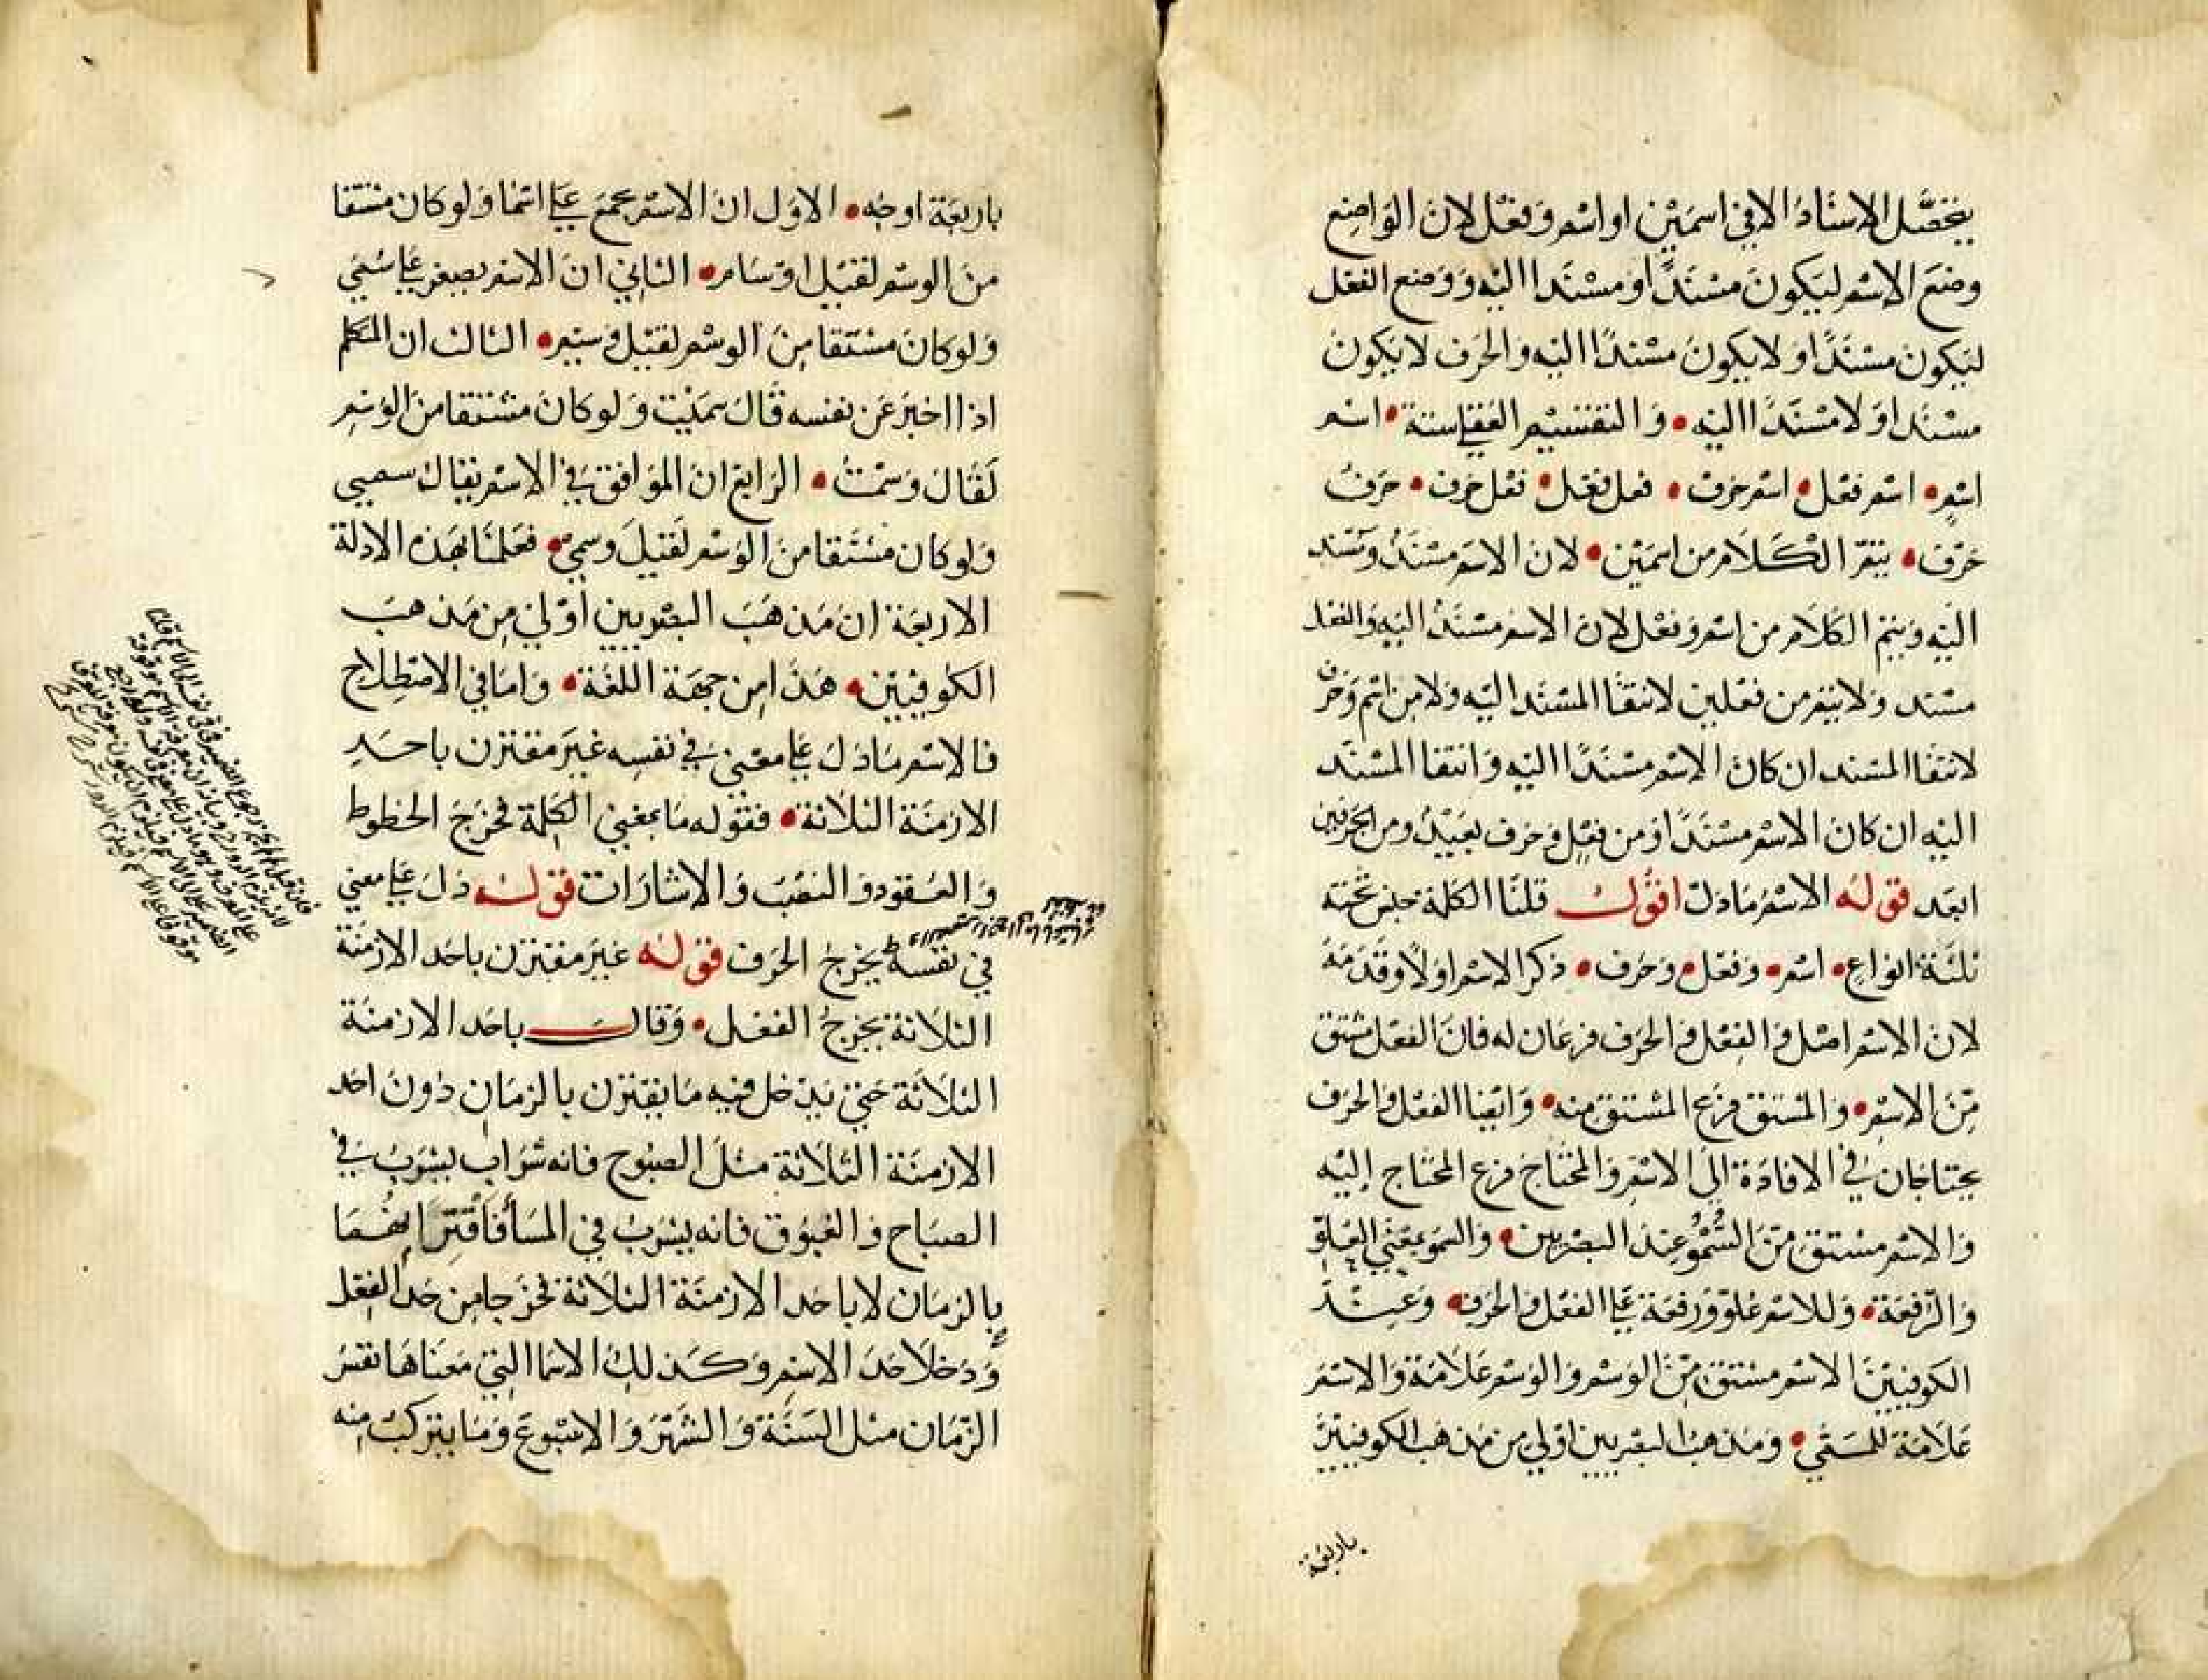 يتحصّل الاسناد الا في اسمين او اسم وفعل لان الواضع
وضع الاسم ليكون مسندًا او مسندا اليه ووضع الفعل
ليكون مسندًا ولا يكون مسندًا اليه والحرف لا يكون
مسندا ولا مسندًا اليه • والتقسيم العقلي ستة • اسم
اسم • اسم فعل • اسم حرف • فعل فعل • فعل حرف • حرف
حرف • يتم الكلام من اسمين • لان الاسم مسند ومسند
اليه ويتم الكلام من اسم وفعل لان الاسم مسند اليه والفعل
مسند ولا يتم من فعلين لانتفا المسند اليه ولا من اسم وحرف
لانتفا المسند ان كان الاسم مسندًا اليه وانتفا المسند
اليه ان كان الاسم مسندًا ومن فعل وحرف بعيد ومن الحرفين
ابعد قوله الاسم ما دل اقول قلنا الكلمة جنس تحته
ثلثة انواع • اسم • وفعل • وحرف • ذكر الاسم اولا وقدمه
لان الاسم اصل والفعل والحرف فرعان له فان الفعل مشتق
من الاسم • والمشتق فرع المشتق منه • وايضا الفعل والحرف
يحتاجان في الافادة الى الاسم والمحتاج فرع المحتاج إليه
والاسم مشتق من السُّمُوّ عند البصريين • والسمو بمعني العلوّ
والرفعة • وللاسم علوّ ورفعة علي الفعل والحرف • وعند
الكوفيين الاسم مشتق من الوسم والوسم علامة والاسم
علامة للمسمّي • ومذهب البصريين اولي من مذهب الكوفيين
باربعة
باربعة اوجه • الاول ان الاسم يجمع علي اسما ولو كان مشتقا
من الوسم لقيل اوسام • الثاني ان الاسم يصغر علي سُمَي
ولو كان مشتقا من الوسم لقيل وسيم • الثالث ان المتكلم
اذا اخبر عن نفسه قال سميت ولو كان مشتقا من الوسم
لقال وسمتُ • الرابع ان الموافق في الاسم يقال سميي
ولو كان مشتقا من الوسم لقيل وسمي • فعلمنا بهذه الادلة
الاربعة ان مذهب البصريين أولي من مذهب
الكوفيين • هذا من جهة اللغة • واما في الاصطلاح
فالاسم ما دل علي معني في نفسه غير مقترن باحد
الازمنة الثلاثة • فقوله ما بمعني الكلمة فخرج الخطوط
والعقود والنصب والاشارات قوله دل علي معني
في نفسه يخرج الحرف قوله غير مقترن باحد الازمنة
الثلاثة يخرج الفعل • وقال باحد الازمنة
الثلاثة حتي يدخل فيه ما يقترن بالزمان دون احد
الازمنة الثلاثة مثل الصبوح فانه شراب يشرب في
الصباح والغبوق فانه يشرب في المسأ فاقترانهما
بالزمان لا باحد الازمنة الثلاثة فخرجا من حد الفعل
ودخلا حد الاسم وكذلك الاسما التي معناها نفس
الزمان مثل السنة والشهر والاسبوع وما يتركب منه